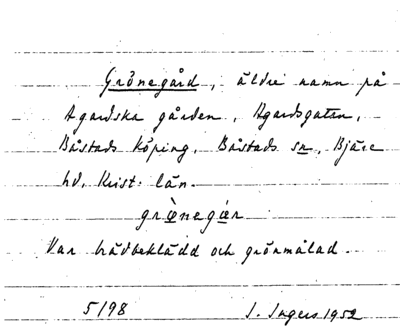 Grönegård, äldre namn på
Agardska gården, Agardsgatan,
Båstads köping, Båstads sn, Bjäre
hd, Krist. län.
grø̀negår
Var brädbeklädd och grönmålad.
5198 I. Ingers 1952